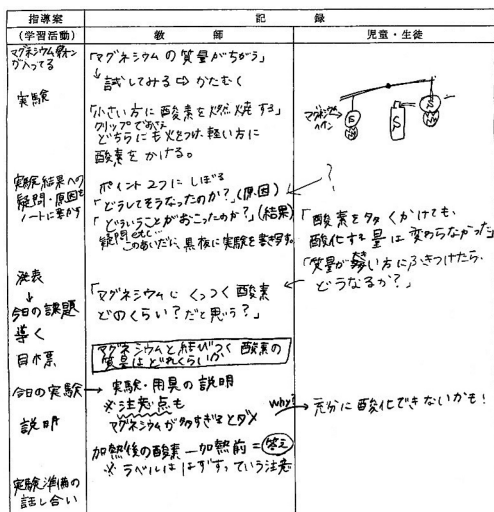 指導案
記 録
(学習活動)
教 師
児童・生徒
マグネシウムリボン
が入ってる
「マグネシウムの質量がちがう」
↓ 試してみる ⇨ かたむく
実験
「小さい方に酸素を燃焼する」
クリップであさえ
どちらにも火をつけ、軽い方に
酸素をかける。
マグネシウム
リボン
実験結果への
疑問・原因を
ノートに書かす
ポイント2つにしぼる
「どうしてそうなったのか?」(原因)
?
「どういうことがおこったのか?」(結果)
疑問etc… このあいだに、黒板に実験を書き写す。
「酸素を多くかけても、
酸化する量は変わらなかった」
「質量が多い方にふきつけたら、
どうなるか?」
発表
↓
今日の課題
導く
「マグネシウムにくっつく酸素
どのくらい?だと思う?」
目標
マグネシウムと結びつく酸素の
質量はどれくらいか
今日の実験→
実験・用具の説明
※注意点も
説明
マグネシウムが多すぎるとダメ
why?
充分に酸化できないかも!
加熱後の酸素 ー 加熱前 = 答え
※ ラベルははずすっていう注意
実験準備の
話し合い